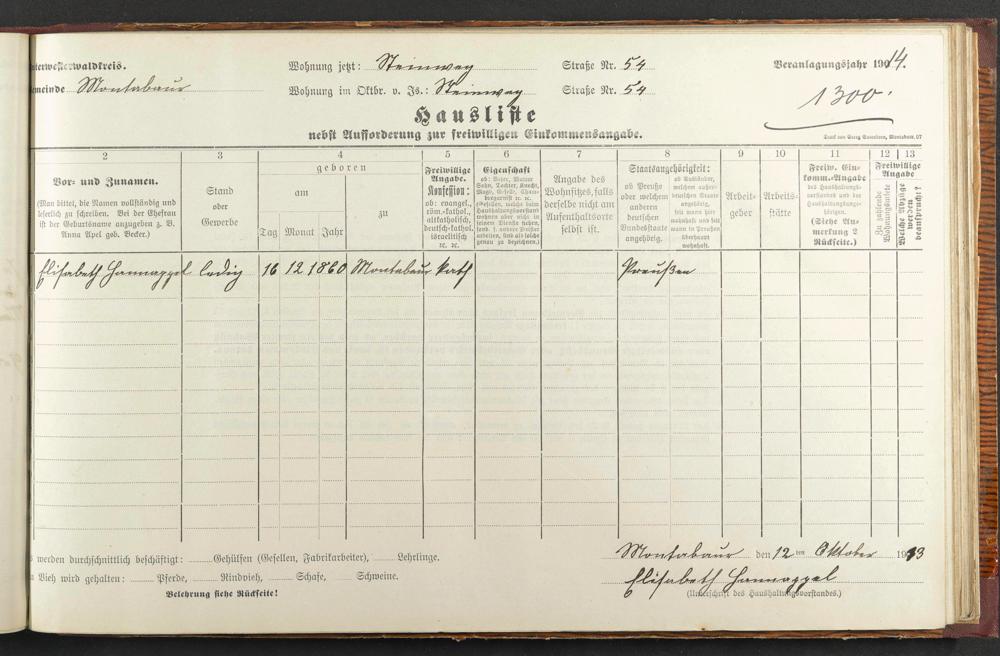 nterwesterwaldkreis. Wohnung jetzt: Steinweg Straße Nr. 54 Veranlagungsjahr 1914.
emeinde Montabaur Wohnung im Oktbr. v. Js.: Steinweg Straße Nr. 54
1300.
Hausliste
nebst Aufforderung zur freiwilligen Einkommensangabe.
Druck von Georg Sauerborn, Montabaur. 07
2 3 4 5 6 7 8 9 10 11 12 13
Vor- und Zunamen.
(Man bittet, die Namen vollständig und
leserlich zu schreiben. Bei der Ehefrau
ist der Geburtsname anzugeben z. B.
Anna Apel geb. Becker.)
Stand
oder
Gewerbe
geboren
am
zu
Tag Monat Jahr
Freiwillige
Angabe.
Konfession:
ob: evangel.,
röm.-kathol.,
altkatholisch,
deutsch-kathol.
israelitisch
rc. rc.
Eigenschaft
ob: Vater, Mutter
Sohn, Tochter, Knecht,
Magd, Geselle, Cham-
bregarnist rc. rc.
(Gesellen, welche beim
Haushaltungsvorstand
wohnen aber nicht in
seinem Dienste stehen,
sond. f. andere Meister
arbeiten, sind als solche
genau zu bezeichnen.)
Angabe des
Wohnsitzes, falls
derselbe nicht am
Aufenthaltsorte
selbst ist.
Staatsangehörigkeit:
ob Preuße
oder welchem
anderen
deutschen
Bundesstaate
angehörig.
ob Ausländer,
welchem außer-
deutschen Staate
angehörig,
seit wann hier
wohnhaft und seit
wann in Preußen
überhaupt
wohnhaft.
Arbeit-
geber
Arbeits-
stätte
Freiw. Ein-
komm.-Angabe
des Haushaltungs-
vorstandes und der
Haushaltungsange-
hörigen.
(Siehe An-
merkung 2
Rückseite.)
Freiwillige
Angabe
Zu zahlende
Wohnungsmiete
Welche Abzüge
werden
beansprucht?
Elisabeth Hannappel ledig 16 12 1860 Montabaur kath Preußen
werden durchschnittlich beschäftigt: Gehülfen (Gesellen, Fabrikarbeiter), Lehrlinge.
Montabaur den 12ten Oktober 1913
Vieh wird gehalten: Pferde, Rindvieh, Schafe, Schweine.
Elisabeth Hannappel
Belehrung siehe Rückseite!
(Unterschrift des Haushaltungsvorstandes.)